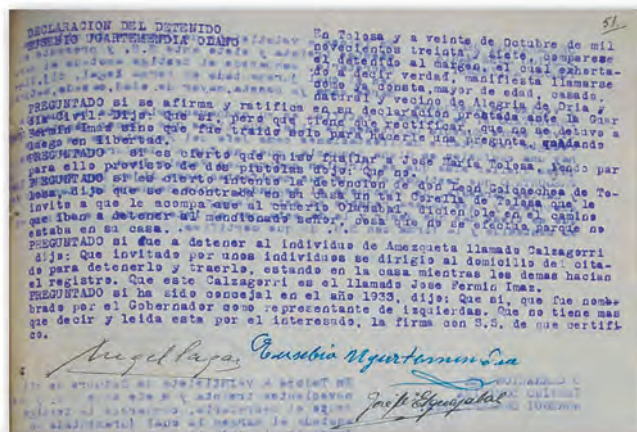 51.
DECLARACION DEL DETENIDO
EUSEBIO UGARTEMENDIA OZANO
En Tolosa y a veinte de Octubre de mil
novecientos treinta y siete, comparece
el detenido al margen, el cual exhorta-
do a decir verdad, manifiesta llamarse
como consta, mayor de edad, casado,
natural y vecino de Alegria de Oria, y
PREGUNTADO si se afirma y ratifica en su declaración prestada ante la Guar
dia Civil. Dijo: Que si, pero que tiene que rectificar, que no se detuvo a
Fermin Imaz sino que fue traido solo para hacerle una pregunta, quedando
luego en libertad.
PREGUNTADO si es cierto que quiso fusilar a Jose Maria Tolosa, yendo par
para ello provisto de dos pistolas dojo: Que no.
PREGUNTADO si es cierto intento la detencion de don Leon Goicoechea de To-
losa, dijo que se encontraba en su casa un tal Corella de Tolosa que le
invito a que le acompañase al caserio Olazabal diciendole en el camino
que iban a detener al mencionado señor, cosa que no se efectua porque no
estaba en su casa.
PREGUNTADO si fue a detener al individuo de Amezqueta llamado Calzagorri
dijo: Que invitado por unos individuos se dirigio al domicilio del cita-
do para detenerlo y traerlo, estando en la casa mientras los demas hacian
el registro. Que este Calzagorri es el llamado Jose Fermin Imaz.
PREGUNTADO si ha sido concejal en el año 1933, dijo: Que si, que fue nomb-
brado por el Gobernador como representante de izquierdas. Que no tiene mas
que decir y leida esta por el interesado, la firma con S.S. de que certifi-
co.
Eusebio Ugartemendia